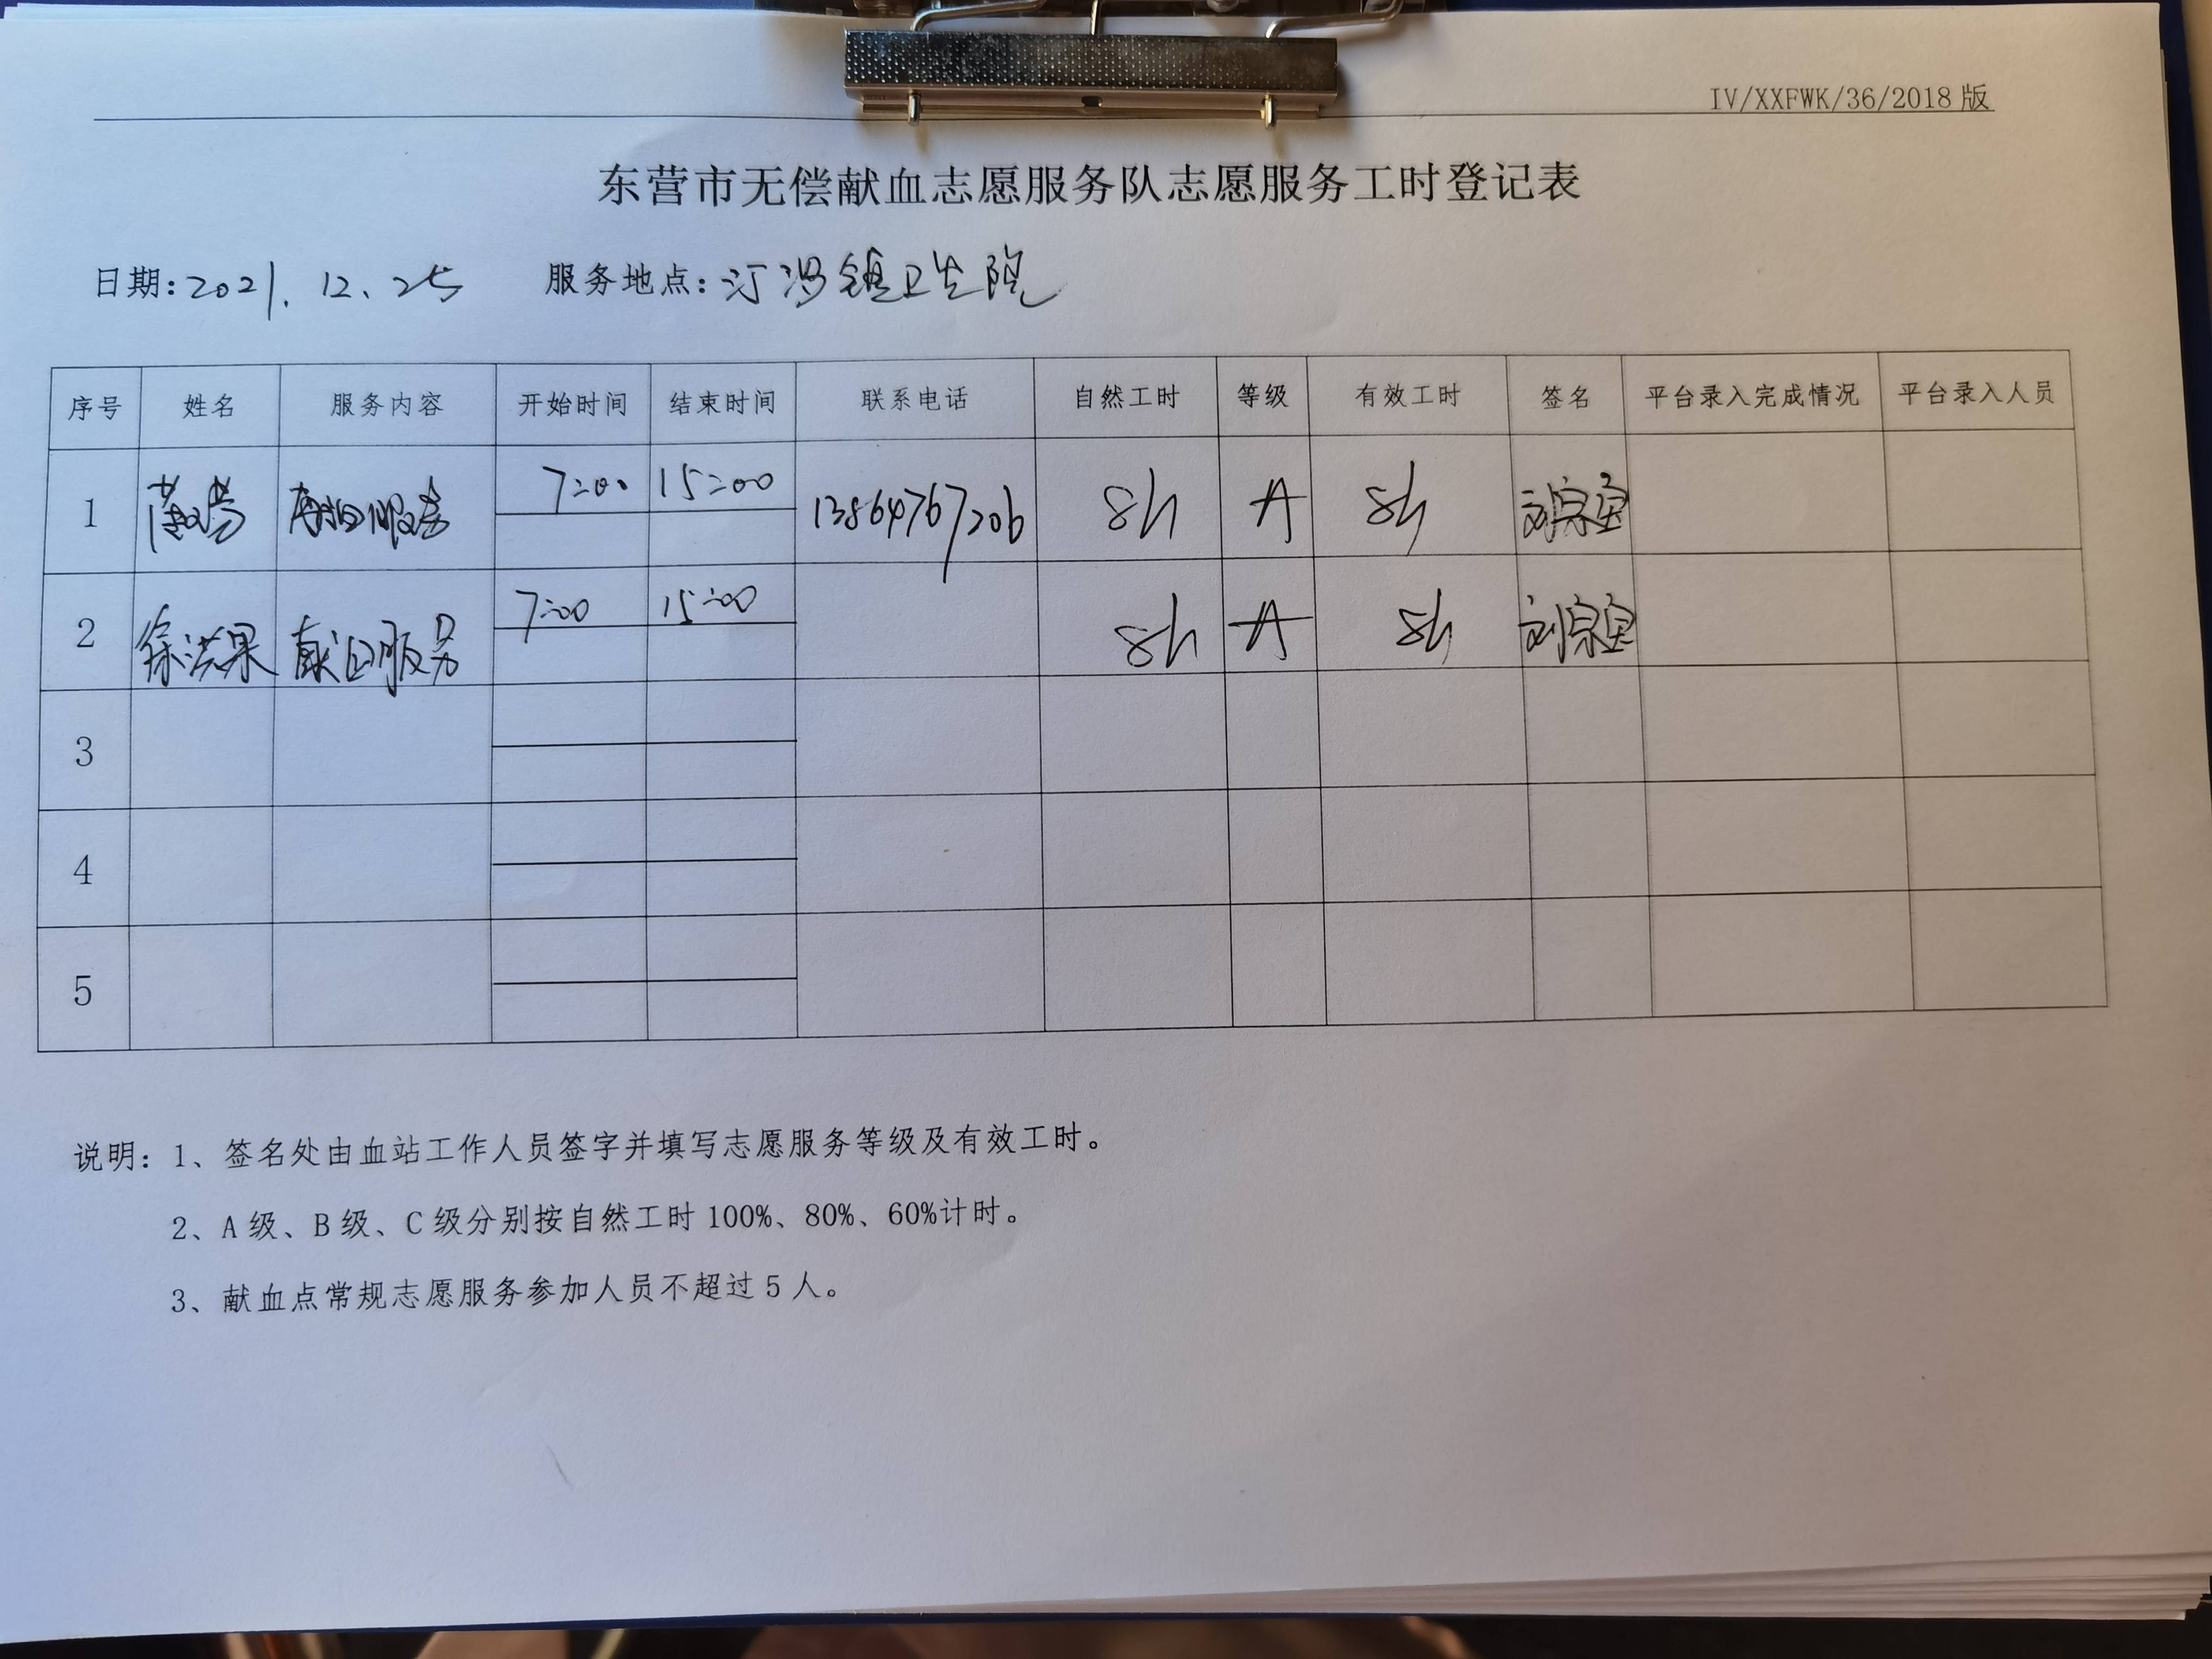 IV/XXFWK/36/2018版
东营市无偿献血志愿服务队志愿服务工时登记表
日期:2021.12.25 服务地点:汀河镇卫生院
序号 姓名 服务内容 开始时间 结束时间 联系电话 自然工时 等级 有效工时 签名 平台录入完成情况 平台录入人员
1 献血服务 7:00 15:00 13864767206 8h A 8h 刘宗宝
2 徐洪果 献血服务 7:00 15:00 8h A 8h 刘宗宝
3
4
5
说明：1、签名处由血站工作人员签字并填写志愿服务等级及有效工时。
2、A级、B级、C级分别按自然工时100%、80%、60%计时。
3、献血点常规志愿服务参加人员不超过5人。